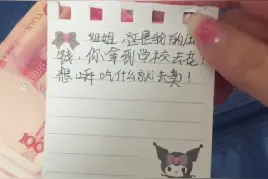 姐姐,这是我的
钱,你拿到学校去花!
想吃什么就去卖!
YUAN
100